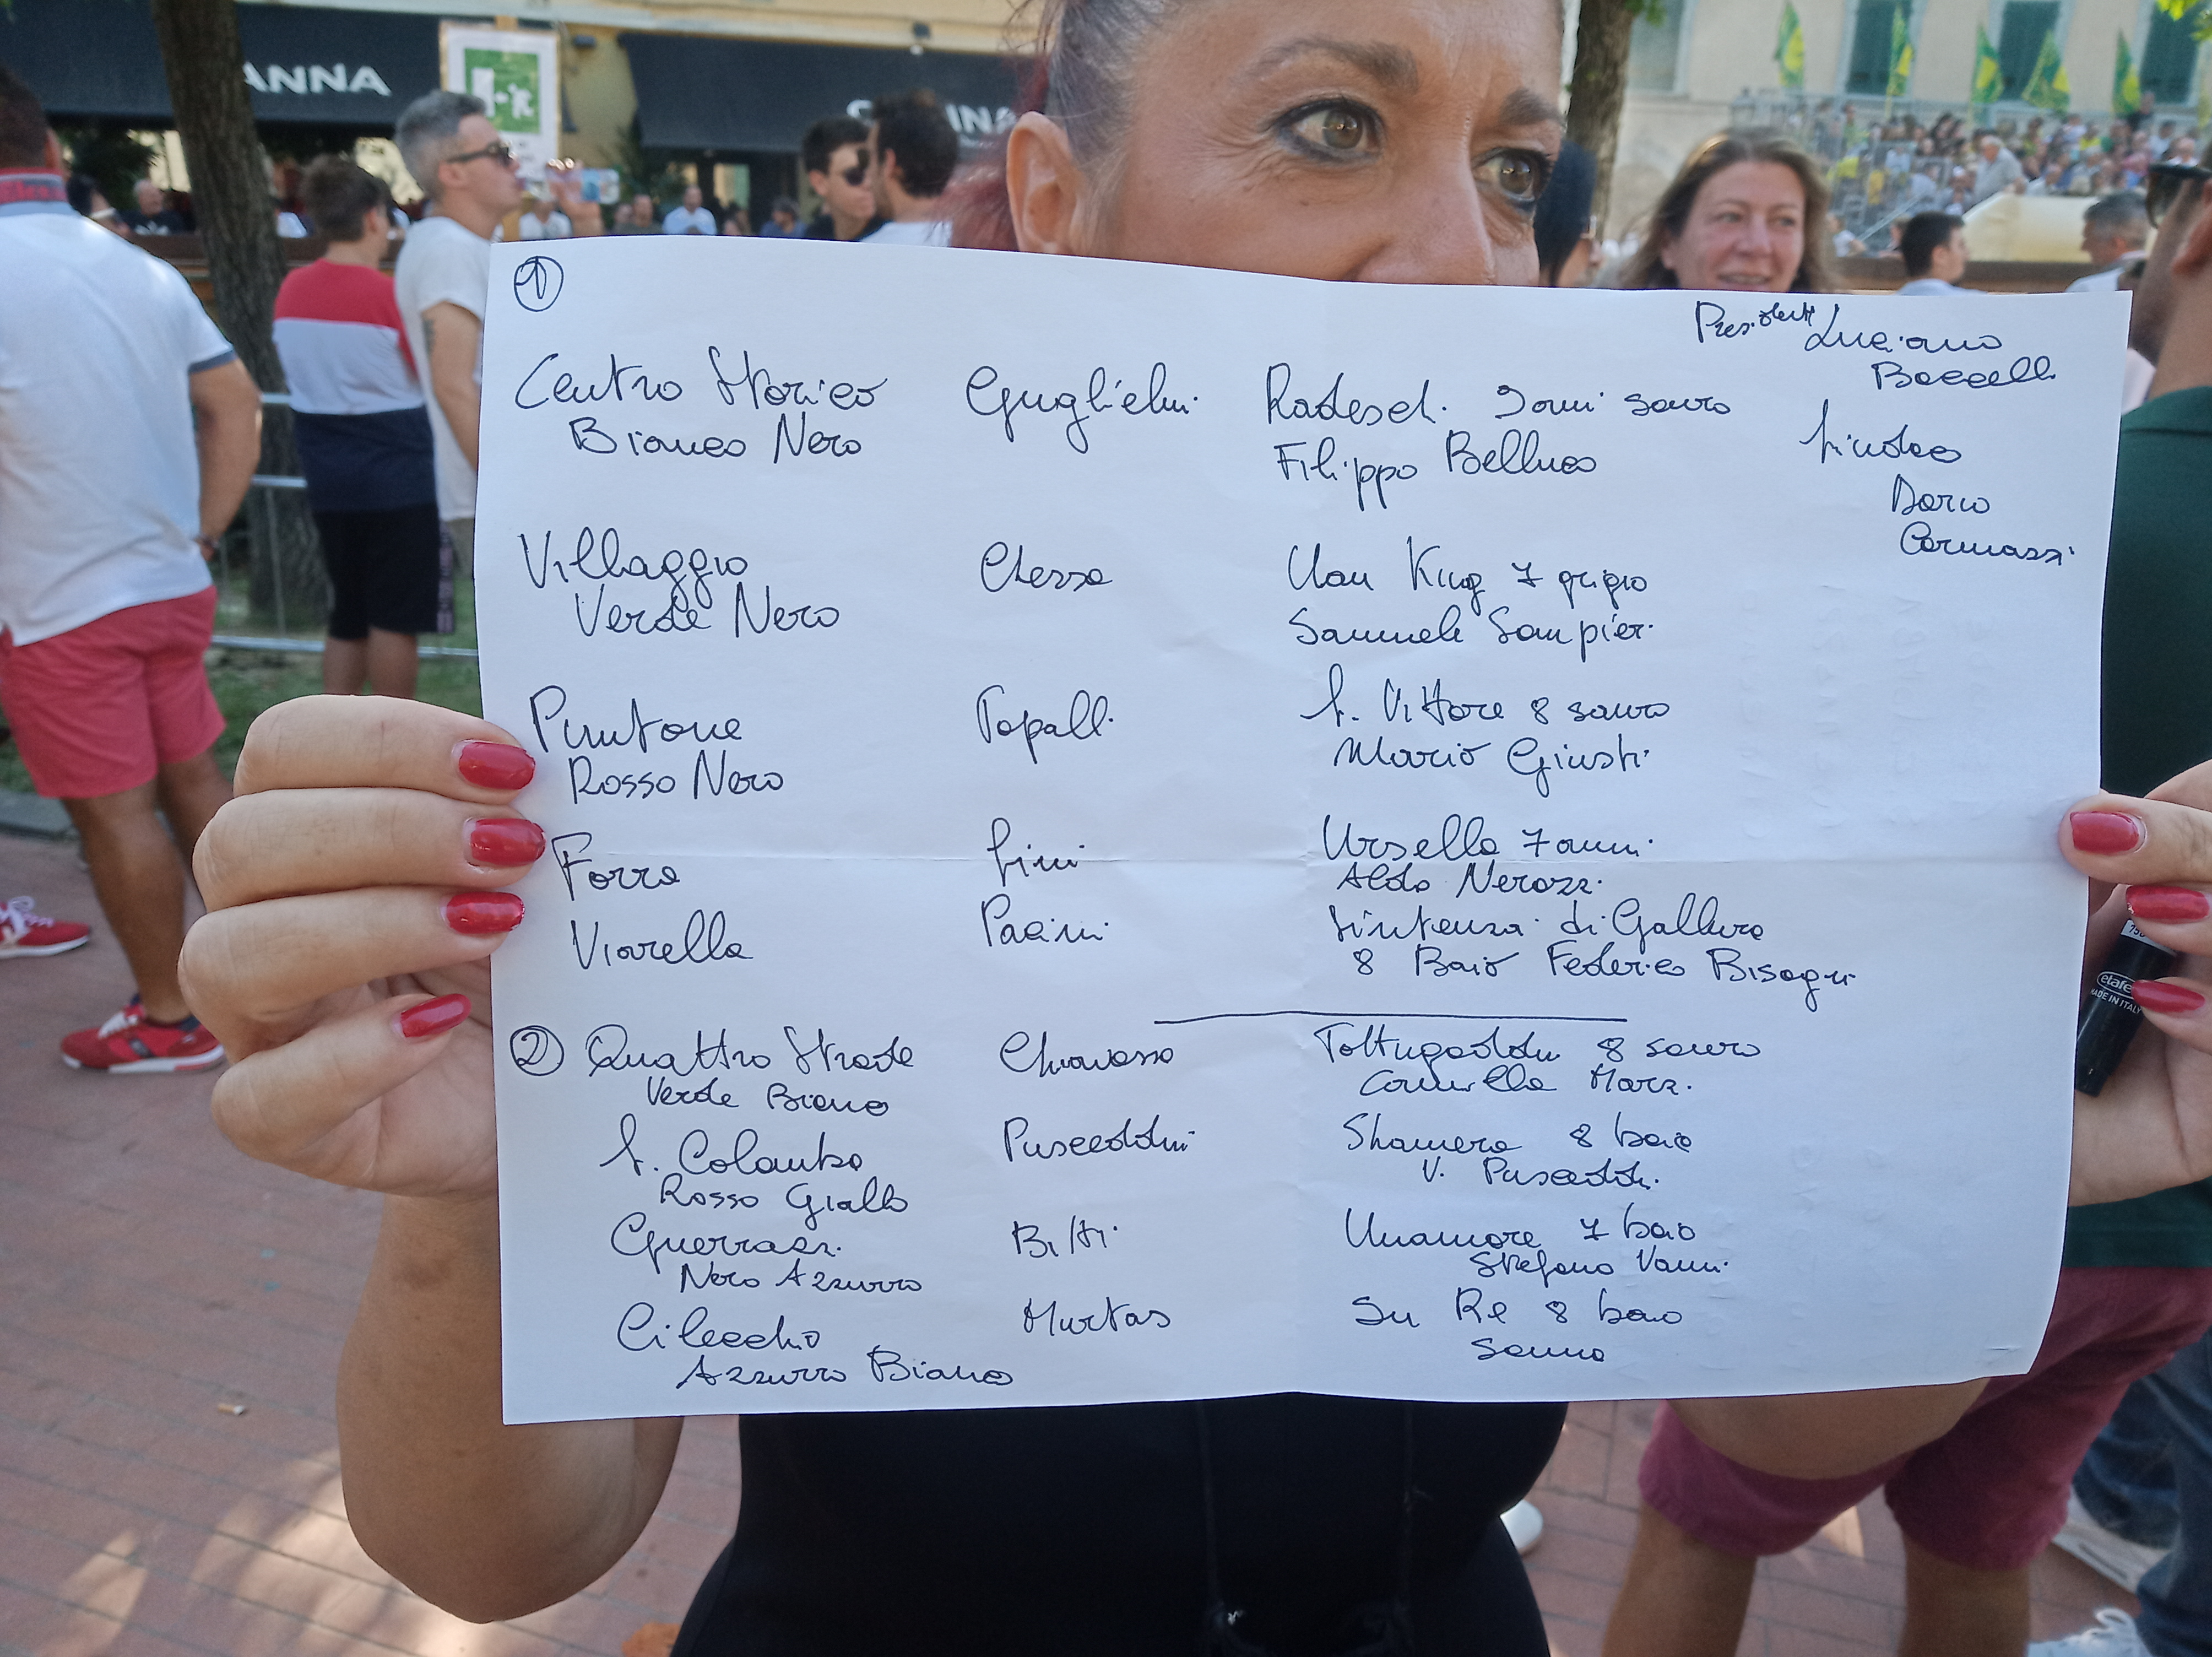 ANNA
①
Presidenti Luciano
Boccelli
Centro Storico Guglielmi Radeschi 9 anni sauro
Bianco Nero Filippo Bellucci
Sindaco
Dario
Carmassi
Villaggio Chessa Uan King 7 grigio
Verde Nero Samuele Sampieri
Pintone Topalli S. Vittore 8 sauro
Rosso Nero Mario Giusti
Forra Sini Ursella 7 anni
Aldo Nerozzi
Viarella Pacini Sintenzia di Gallura
8 Baio Federico Bisogni
② Quattro Strade Chiavassa Toltugaddu 8 sauro
Verde Bianco Camilla Marzi
S. Colomba Pusceddu Shamera 8 baio
Rosso Giallo V. Pusceddu
Guerrazzi Bitti Unamore 7 baio
Nero Azzurro Stefano Vanni
Cilecchio Murtas Su Re 8 baio
Azzurro Bianco Sanna
MADE IN ITALY